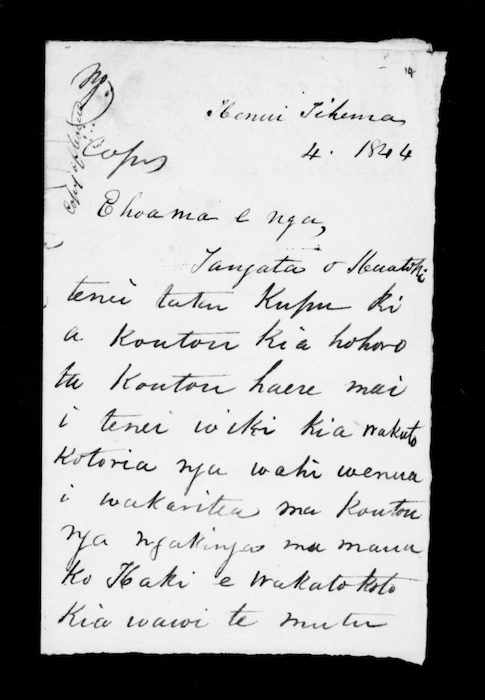 19
No.
Copy of original
Copy
Henui Tihema
4. 1844
Ehoama e nga,
Tangata o Huatoki
tenei tatu Kupu ki
a Koutou kia hohoro
ta Koutou haere mai
i tenei wiki kia wakato
kotoria nga wahi wenua
i wakaritea ma Koutou
nga ngakinga ma maua
ko Haki e wakatokoto
Kia wawi te mutu